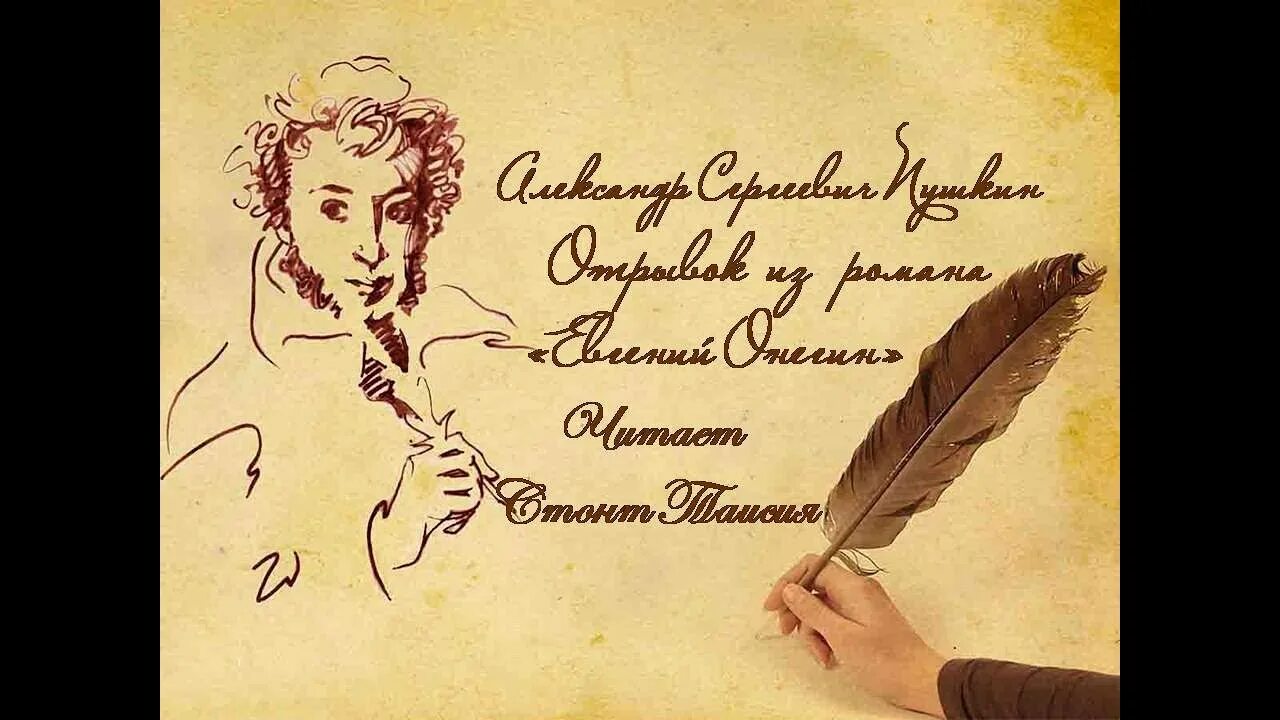 Александр Сергеевич Пушкин
Отрывок из романа
«Евгений Онегин»
Читает
Стонт Таисия